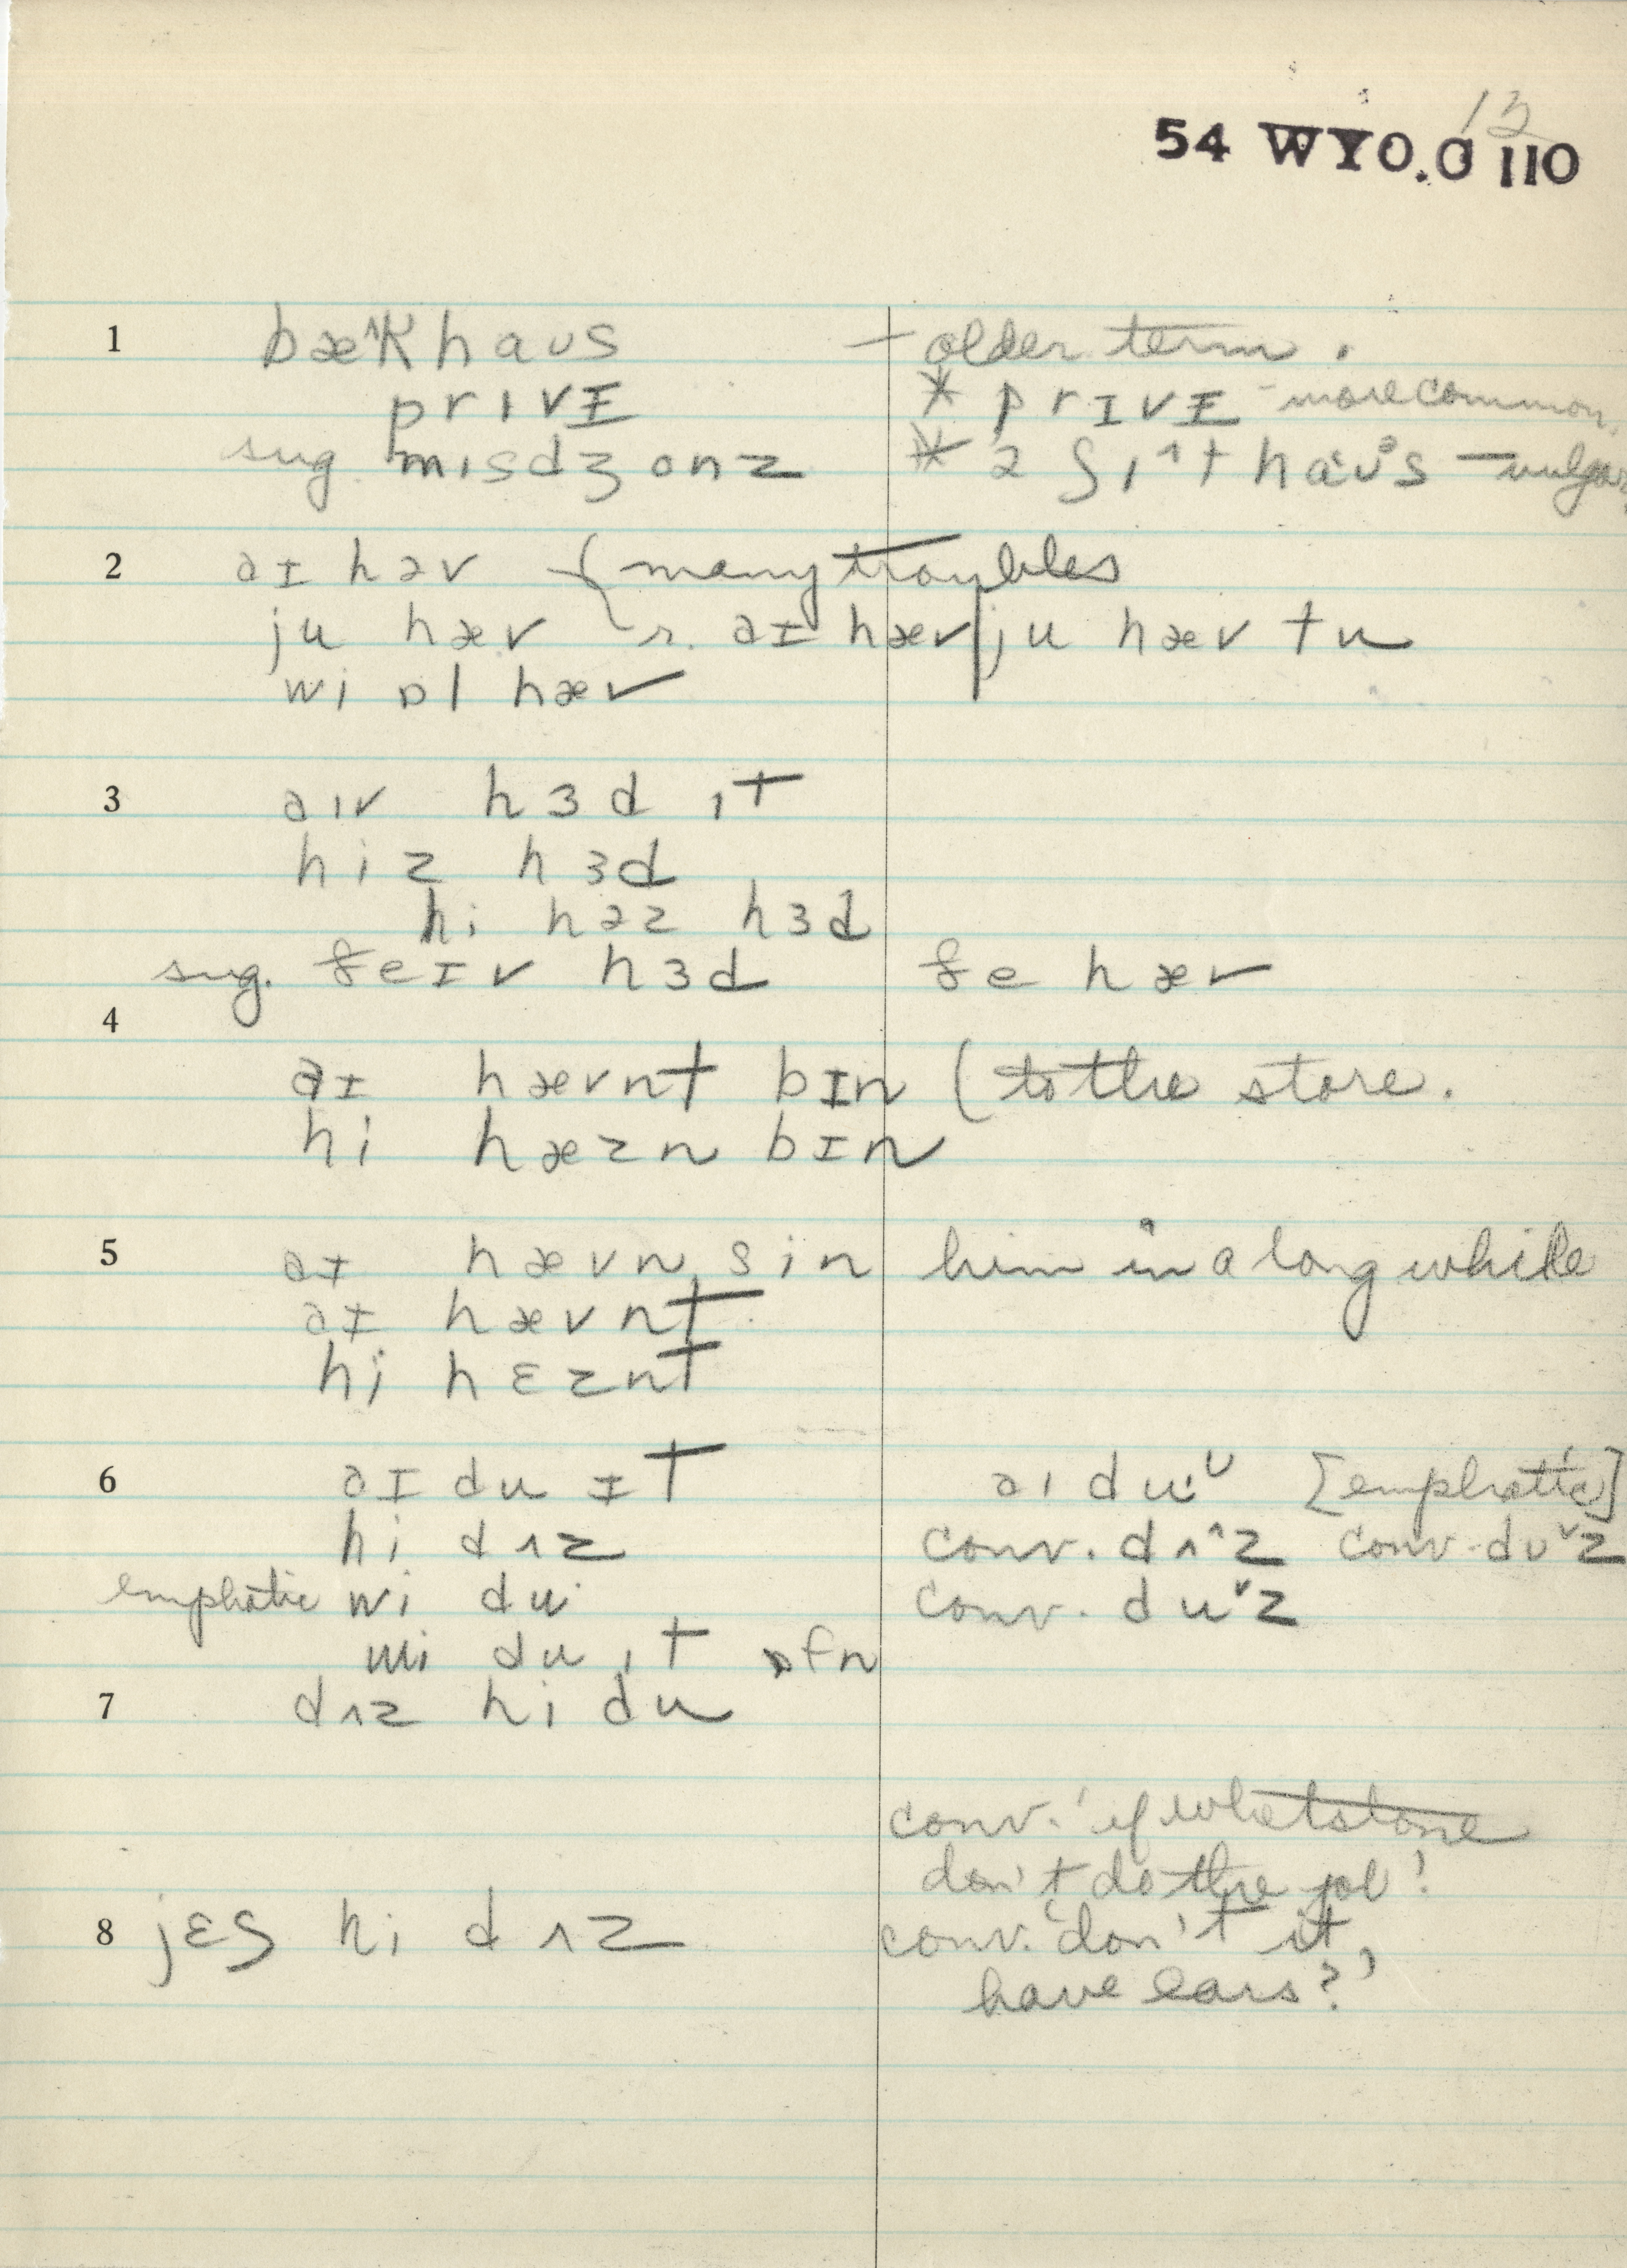 12
54 WYO.G 110
1 bæ^k haus – older term.
prɪvɪ * prɪvɪ - more common.
sug. mɪsdʒonz * ə ʃɪ^t haʊs – vulgar
2 aɪ həv (many troubles
ju hæv r. aɪ hæv | ju hæv tu
wi ɒl hæv
3 aɪv hɜd ɪt
hiz hɜd
hi həz hɜd
sug. ðeɪv hɜd ðe hæv
4
aɪ hævnt bɪn (to the store.
hi hæzn bɪn
5 aɪ hævn sin him in a long while
aɪ hævnt
hi hɛznt
6 aɪ du ɪt aɪ du·ᵘ [emphatic]
hi dʌz conv. dʌ^z conv. duˇz
emphatic wi du· conv. duˇz
wi du ɪt ɒfn
7 dʌz hi du
conv. 'if whetstone
don't do the job'
8 jɛs hi dʌz conv. 'don't it
have ears?'